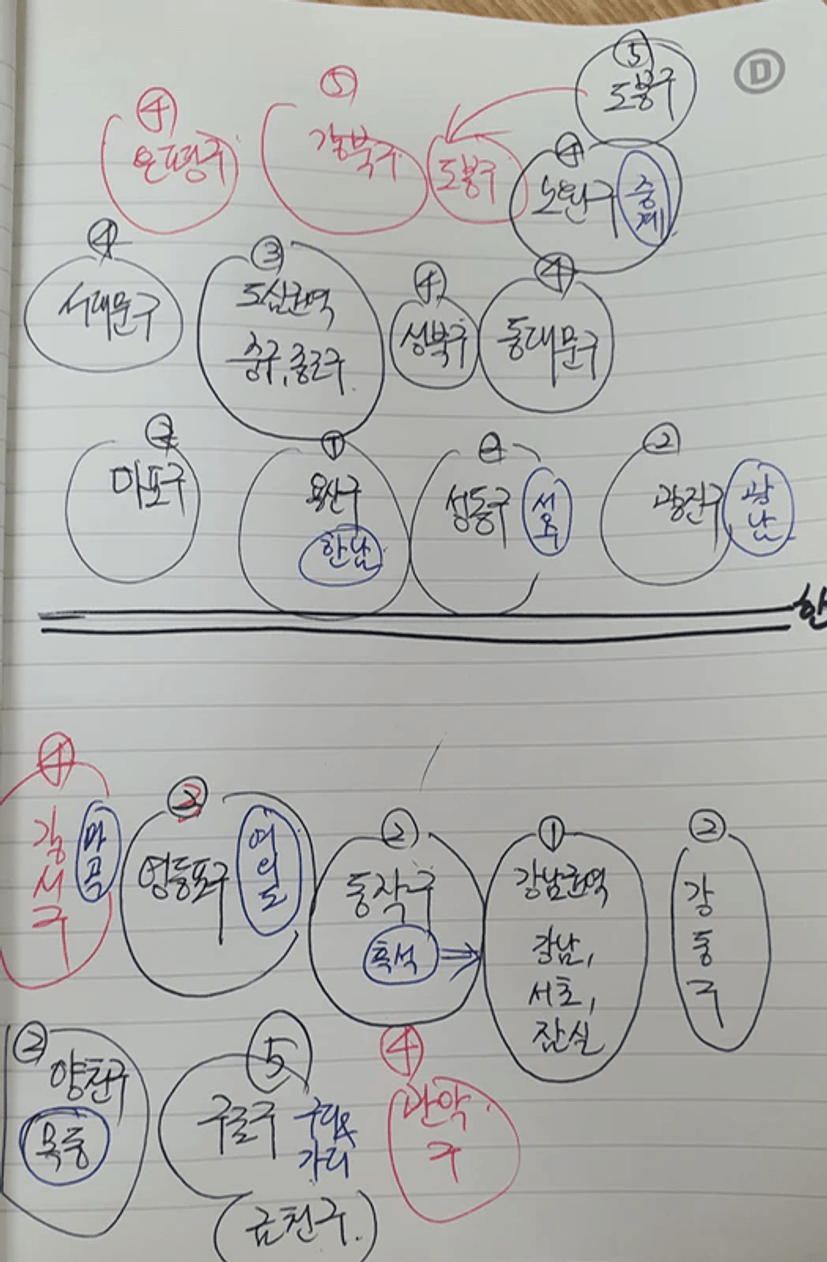 D
⑤
도봉구
④
은평구
⑤
강북구
도봉구
④
노원구
중계
④
서대문구
③
도심권역
중구, 종로구
④
성북구
④
동대문구
②
마포구
①
용산구
한남
성동구
②
광진구
광남
한
④
강서구
마곡
영등포구
여의도
②
동작구
흑석
⇒
①
강남권역
강남,
서초,
잠실
②
강동구
②
양천구
목동
⑤
구로구
구디&
가디
(금천구.)
④
관악구